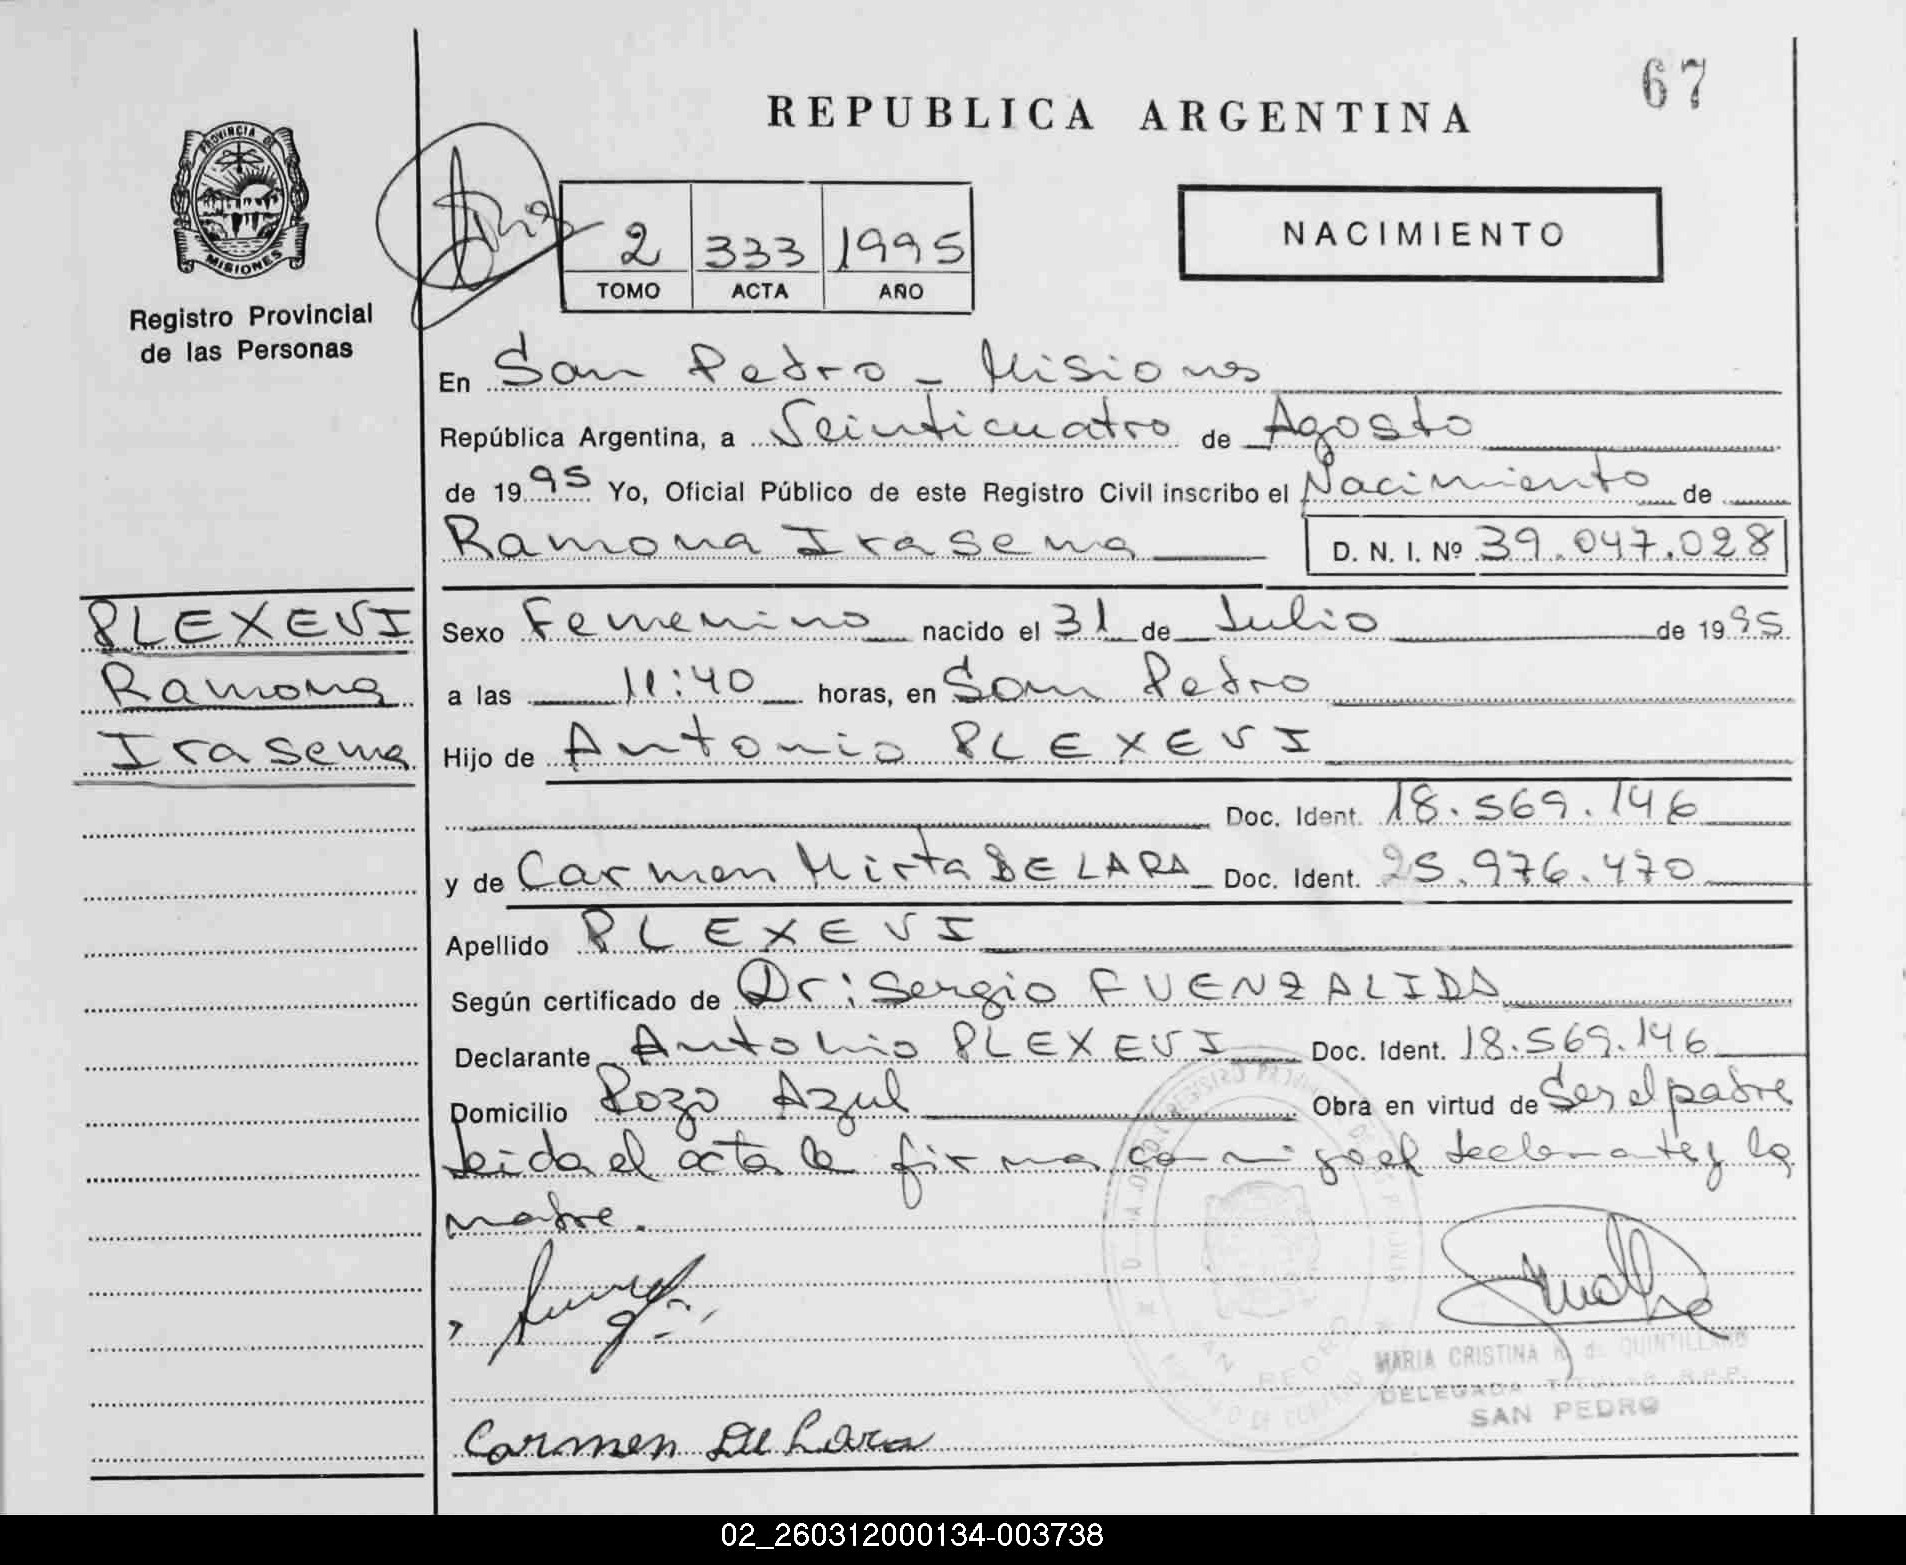 67
REPUBLICA ARGENTINA
PROVINCIA DE
MISIONES
Registro Provincial
de las Personas
2 333 1995
TOMO ACTA AÑO
NACIMIENTO
En San Pedro - Misiones
República Argentina, a Veinticuatro de Agosto
de 1995 Yo, Oficial Público de este Registro Civil inscribo el Nacimiento de
Ramona Irasema D. N. I. Nº 39.047.028
PLEXEVI
Ramona
Irasema
Sexo Femenino nacido el 31 de Julio de 1995
a las 11:40 horas, en San Pedro
Hijo de Antonio PLEXEVI
Doc. Ident. 18.569.146
y de Carmen Mirta DE LARA Doc. Ident. 25.976.470
Apellido PLEXEVI
Según certificado de Dr: Sergio FUENZALIDA
Declarante Antonio PLEXEVI Doc. Ident. 18.569.146
Domicilio Pozo Azul Obra en virtud de Ser el padre
Leida el acta la firma conmigo el declarante y la
madre.
MARIA CRISTINA R. de QUINTILLANO
DELEGADA TITULAR R.P.P.
SAN PEDRO
SAN PEDRO
Carmen De Lara
02_260312000134-003738